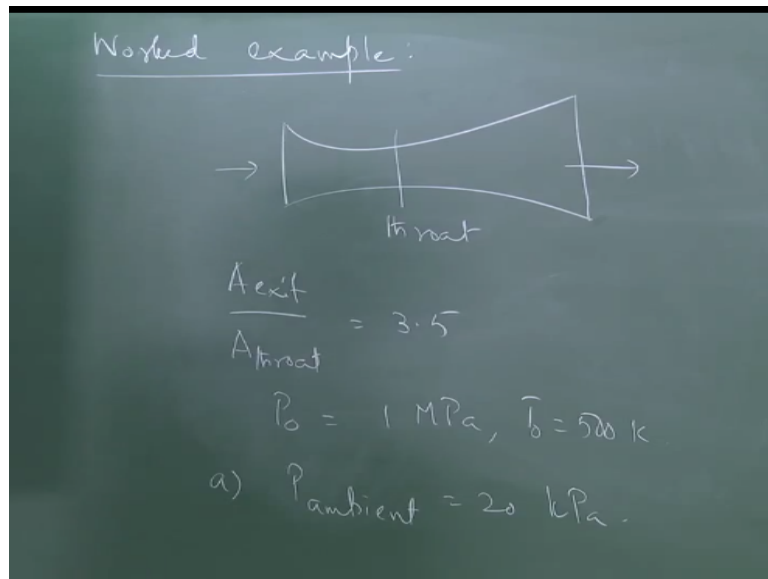 Worked example:
throat
A exit
= 3.5
A throat
P₀ = 1 MPa, T₀ = 500 K
a) P ambient = 20 kPa.